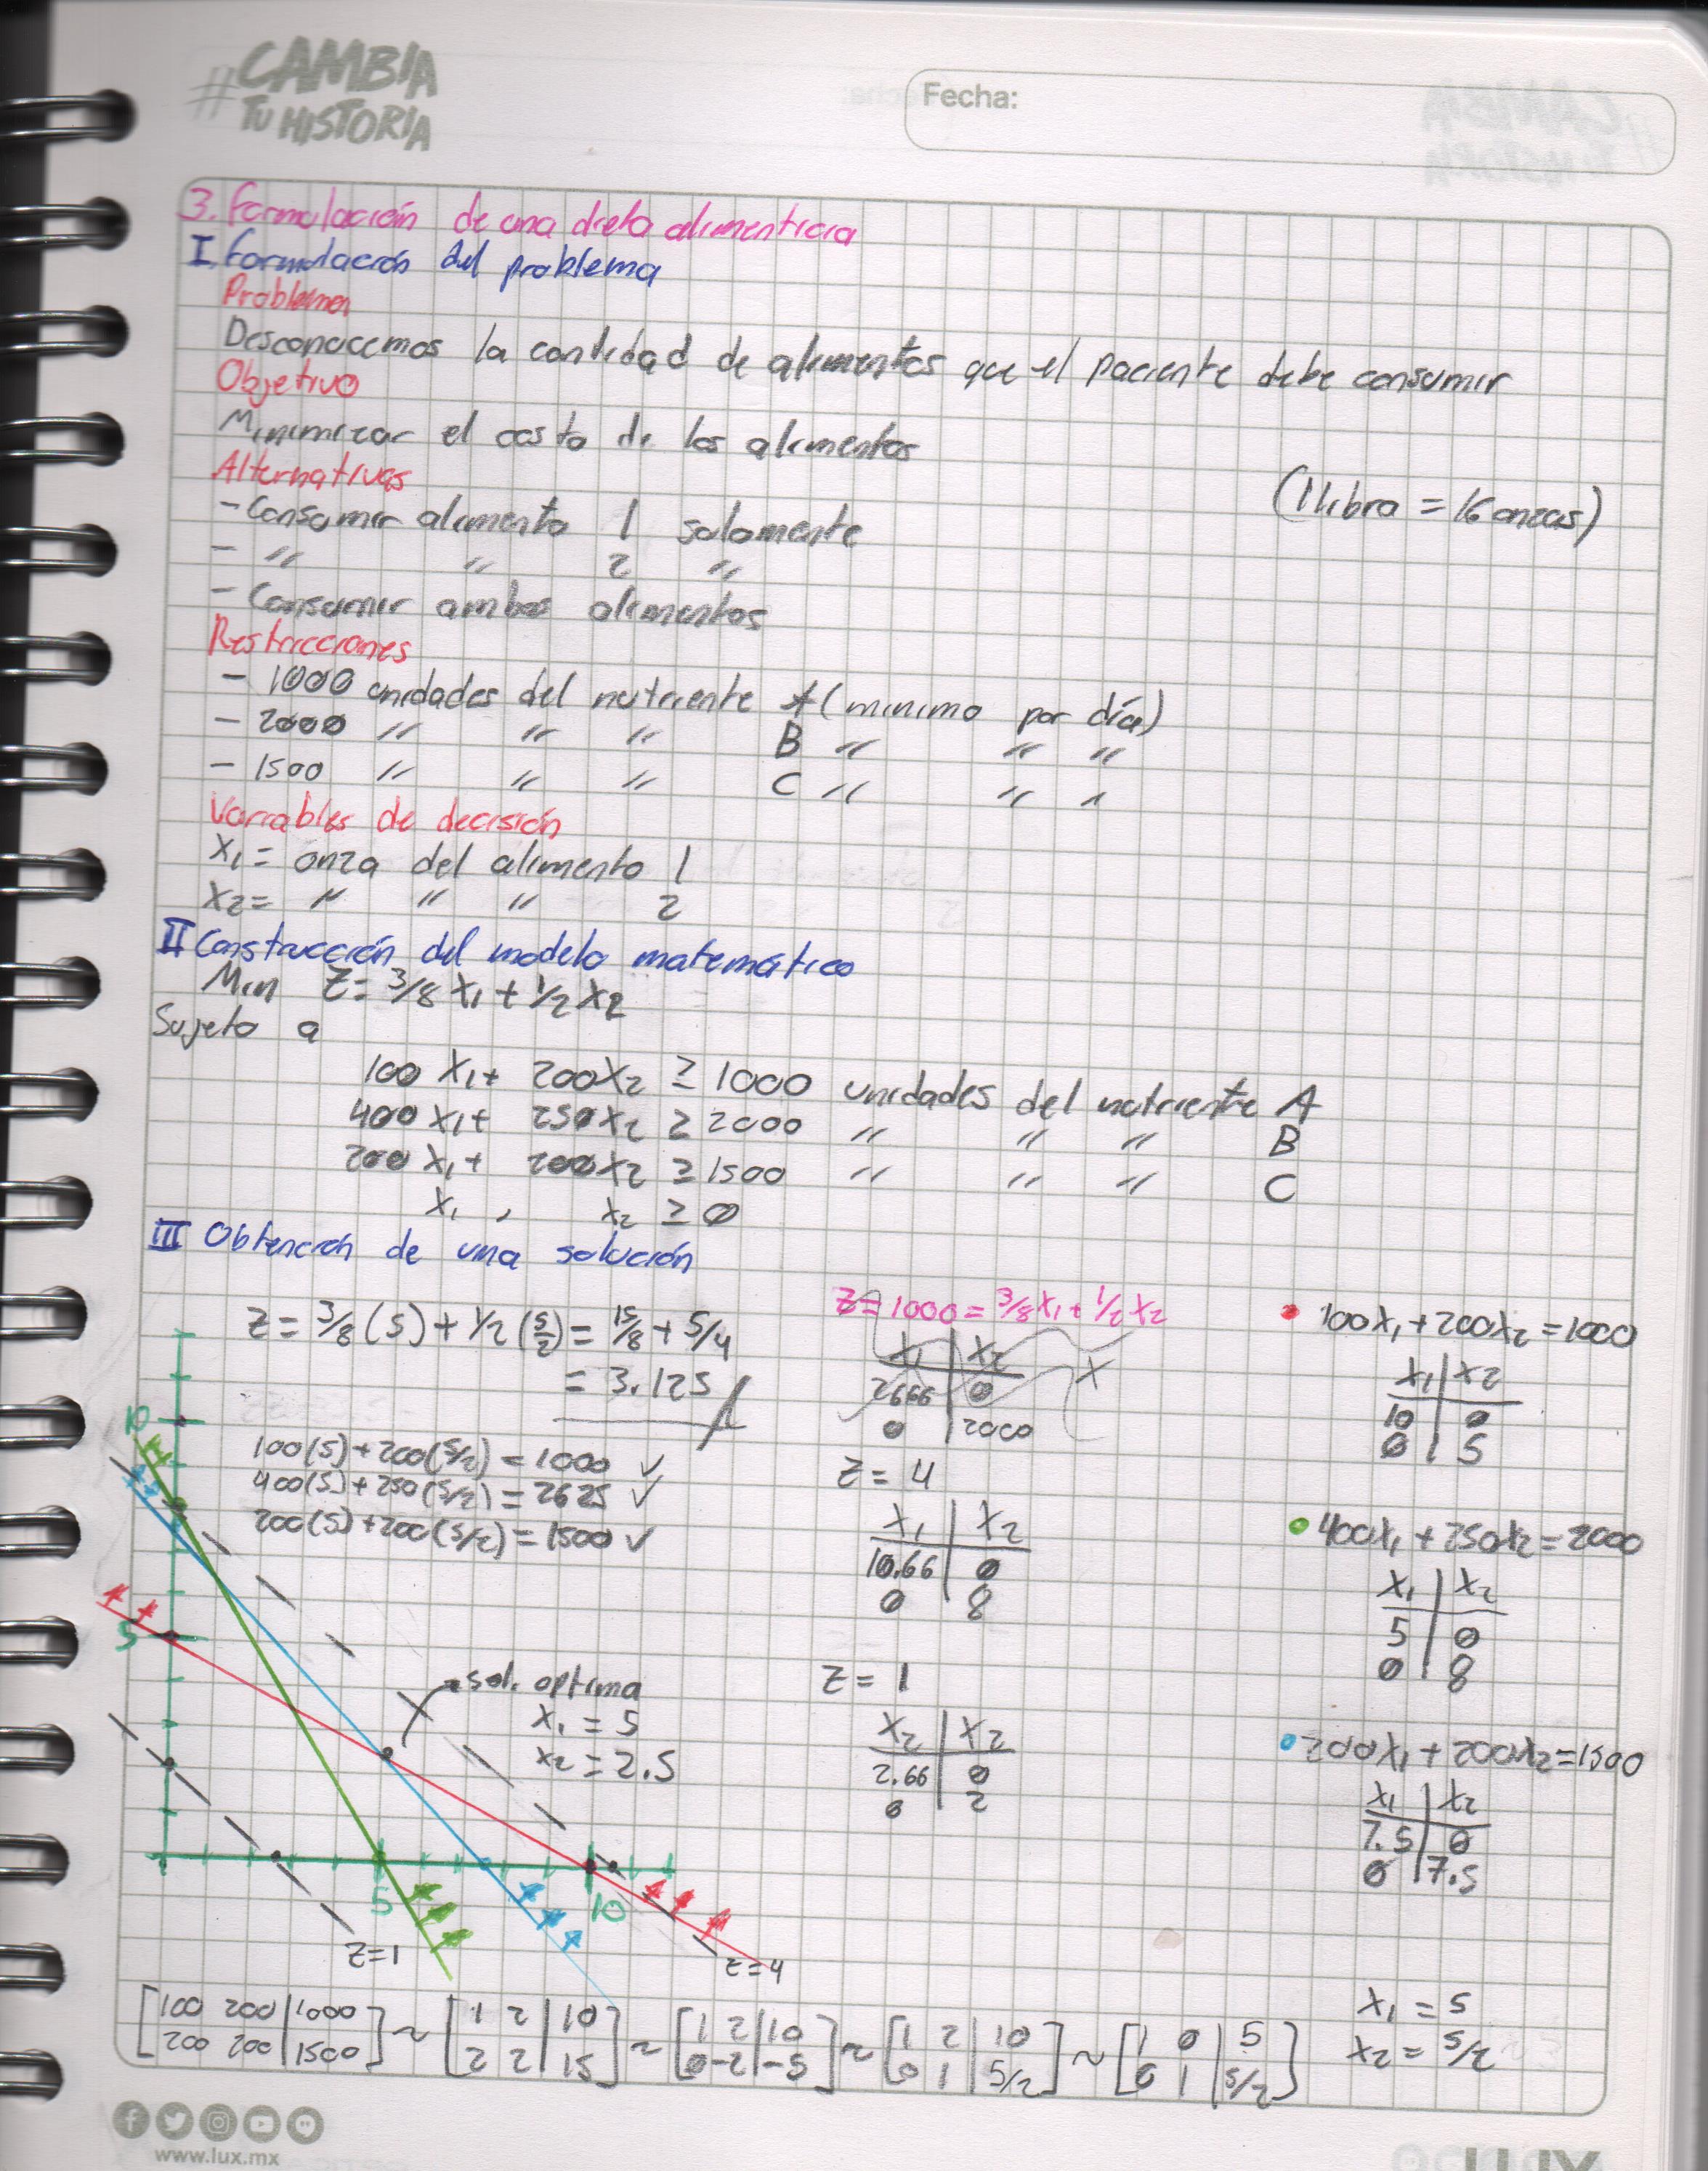 #CAMBIA
TU HISTORIA
Fecha:
3. Formulación de una dieta alimenticia
I Formulación del problema
Problema
Desconocemos la cantidad de alimentos que el paciente debe consumir
Objetivo
Minimizar el costo de los alimentos
Alternativas
(1 libra = 16 onzas)
- Consumir alimento 1 solamente
- " " 2 "
- Consumir ambos alimentos
Restricciones
- 1000 unidades del nutriente A (minimo por día)
- 2000 " " " B " " "
- 1500 " " " C " " "
Variables de decisión
X₁ = onza del alimento 1
X₂ = " " " 2
II Construcción del modelo matemático
Min Z = 3/8 X₁ + 1/2 X₂
Sujeto a
100 X₁ + 200X₂ ≥ 1000 unidades del nutriente A
400 X₁ + 250X₂ ≥ 2000 " " " B
200 X₁ + 200X₂ ≥ 1500 " " " C
X₁ , X₂ ≥ 0
III Obtención de una solución
Z = 3/8 (5) + 1/2 (5/2) = 15/8 + 5/4
= 3.125
100(5) + 200(5/2) = 1000 ✓
400(5) + 250(5/2) = 2625 ✓
200(5) + 200(5/2) = 1500 ✓
10
5
sol. optima
X₁ = 5
X₂ = 2.5
5
10
Z=1
Z=4
Z = 1000 = 3/8 X₁ + 1/2 X₂
X₁ | X₂
2666 | 0
0 | 2000
X
Z = 4
X₁ | X₂
10.66 | 0
0 | 8
Z = 1
X₂ | X₂
2.66 | 0
0 | 2
100X₁ + 200X₂ = 1000
X₁ | X₂
10 | 0
0 | 5
400X₁ + 250X₂ = 2000
X₁ | X₂
5 | 0
0 | 8
200X₁ + 200X₂ = 1500
X₁ | X₂
7.5 | 0
0 | 7.5
[100 200 | 1000] ~ [1 2 | 10] ~ [1 2 | 10] ~ [1 2 | 10] ~ [1 0 | 5] X₁ = 5
[200 200 | 1500] [2 2 | 15] [0 -2 | -5] [0 1 | 5/2] [0 1 | 5/2] X₂ = 5/2
www.lux.mx